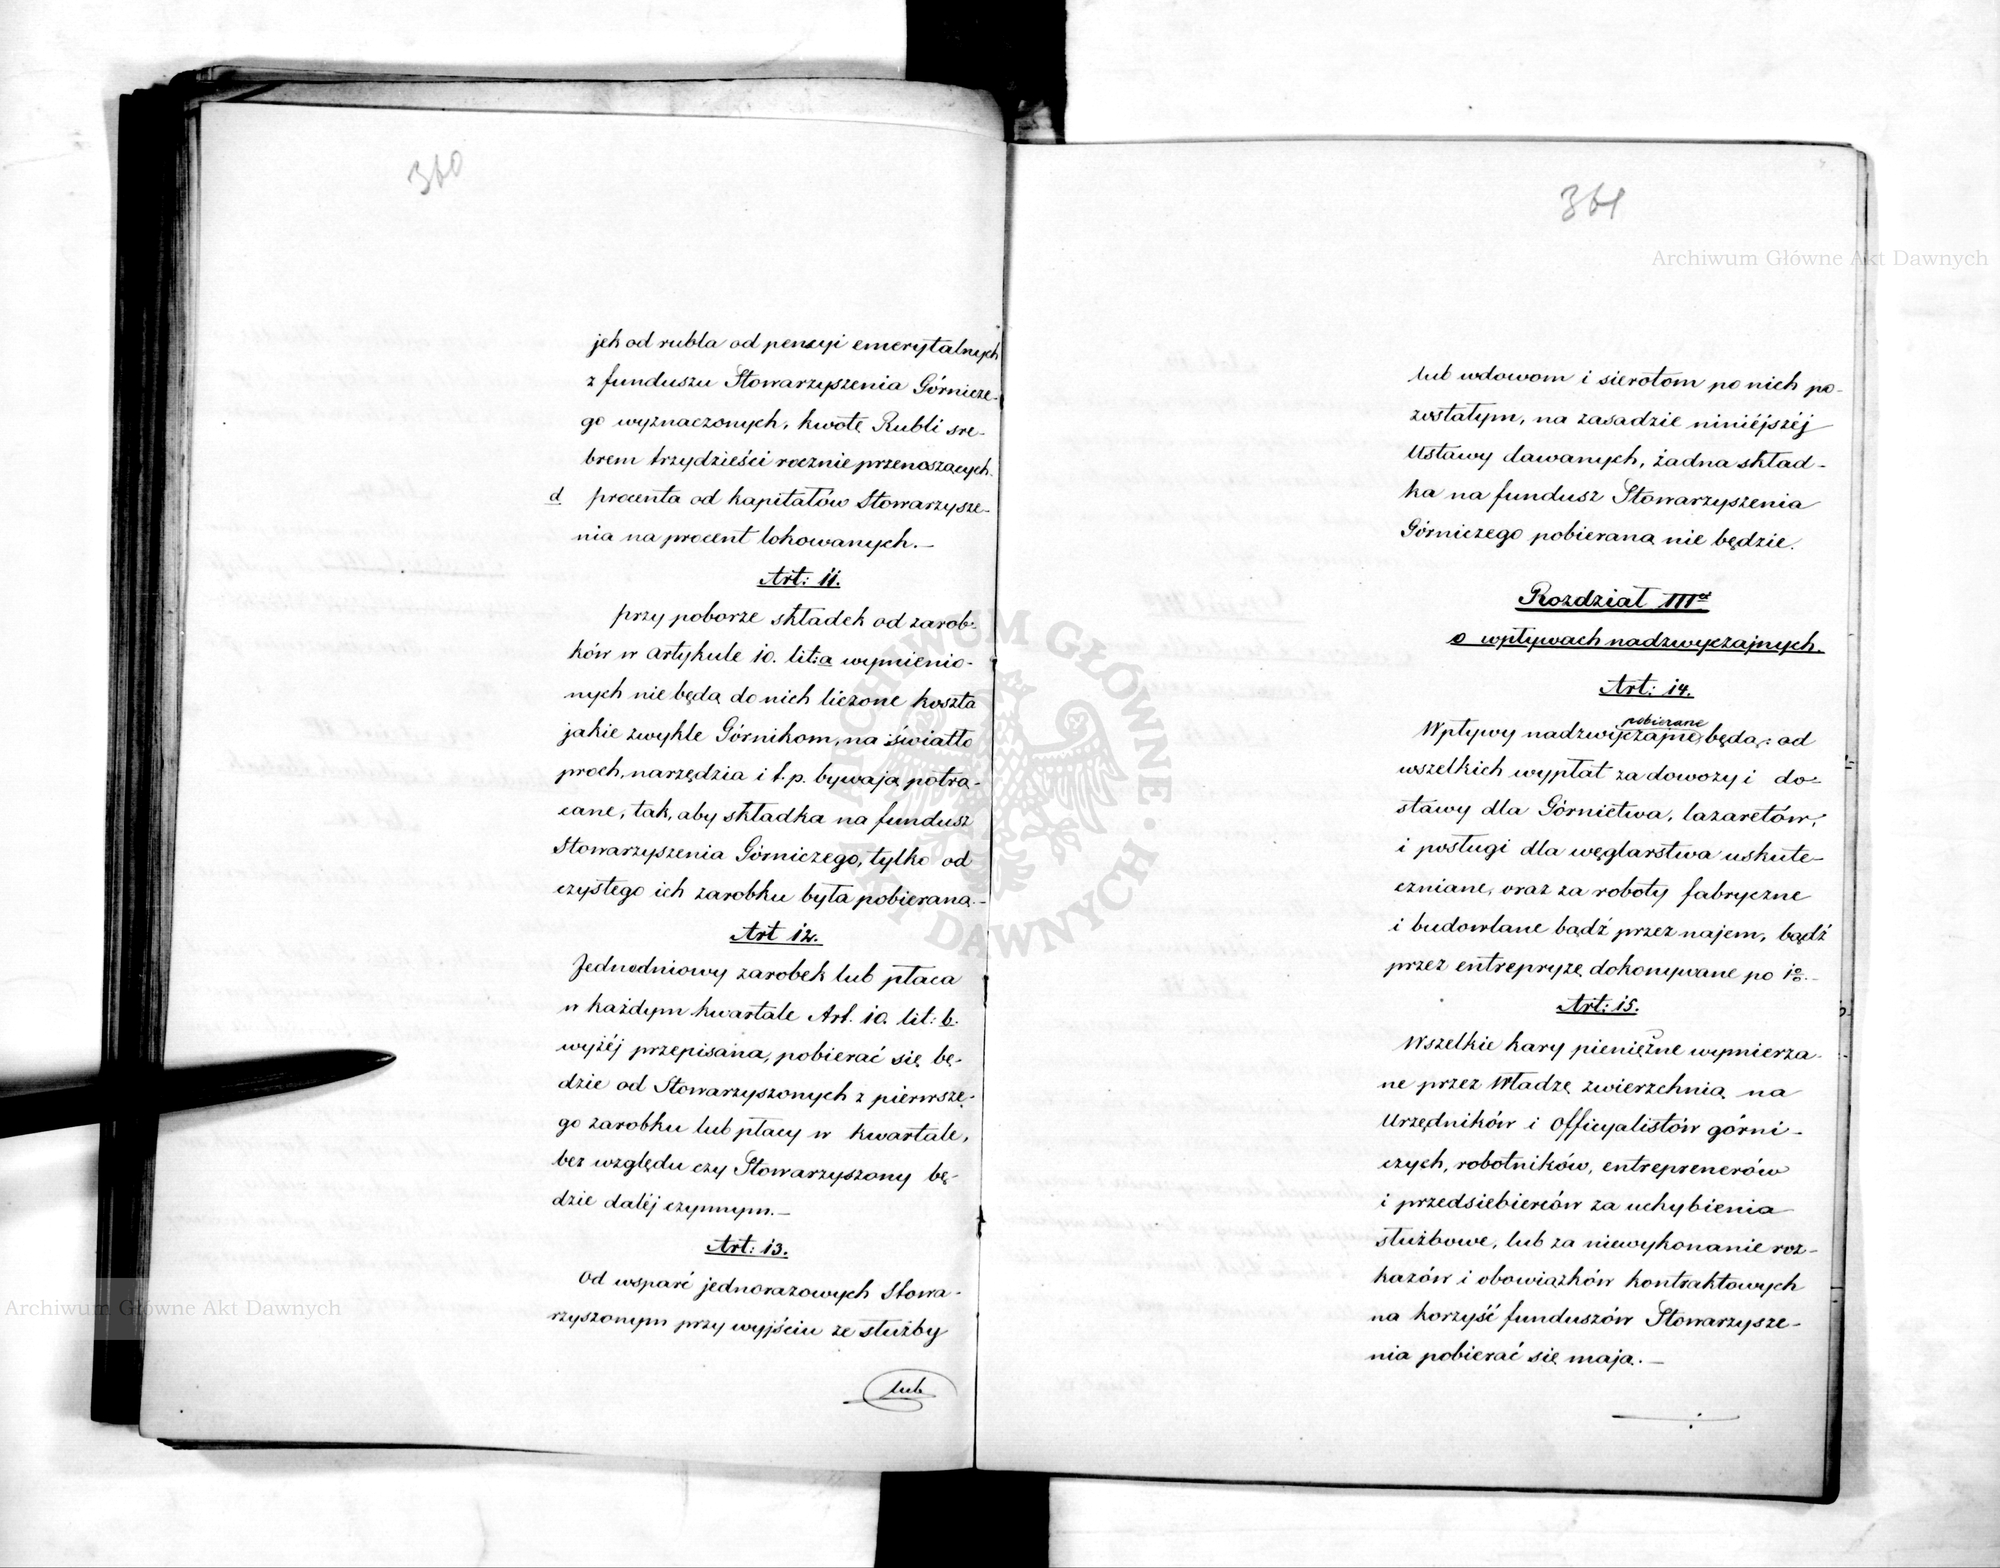 360
jeh od rubla od pensyi emerytalnych
z funduszu Stowarzyszenia Górnicze-
go wyznaczonych, kwotę Rubli sre-
brem trzydzieści rocznie przenoszących.
d procenta od kapitałów Stowarzysze-
nia na procent lokowanych.—
Art: 11.
przy poborze składek od zarob-
ków w artykule 10. lit: a wymienio-
nych nie będą do nich liczone koszta
jakie zwykle Górnikom, na światło
proch, narzędzia i t. p. bywają potrą-
cane, tak, aby składka na fundusz
Stowarzyszenia Górniczego, tylko od
czystego ich zarobku była pobierana.—
Art 12.
Jednodniowy zarobek lub płaca
w każdym kwartale Art. 10. lit: b.
wyżéj przepisana, pobierać się bę-
dzie od Stowarzyszonych z pierwsze-
go zarobku lub płacy w kwartale,
bez względu czy Stowarzyszony bę-
dzie daléj czynnym.—
Art: 13.
Od wsparć jednorazowych Stowa-
rzyszonym przy wyjściu ze służby
lub
361
lub wdowom i sierotom po nich po-
zostałym, na zasadzie niniéjszéj
Ustawy dawanych, żadna skład-
ka na fundusz Stowarzyszenia
Górniczego pobierana nie będzie.
Rozdział IIIci
o wpływach nadzwyczajnych.
Art: 14.
pobierane
Wpływy nadzwyczajne będą: od
wszelkich wypłat za dowozy i do-
stawy dla Górnictwa, lazaretów,
i posługi dla węglarstwa uskute-
czniane, oraz za roboty fabryczne
i budowlane bądź przez najem, bądź
przez entrepryzę dokonywane po 1%.—
Art: 15.
Wszelkie kary pieniężne wymierza-
ne przez Władzę zwierzchnią na
Urzędników i Officyalistów górni-
czych, robotników, entreprenerów
i przedsiebierców za uchybienia
służbowe, lub za niewykonanie roz-
kazów i obowiązków kontraktowych
na korzyść funduszów Stowarzysze-
nia pobierać się mają.—
Archiwum Główne Akt Dawnych
Archiwum Główne Akt Dawnych
ARCHIWUM GŁÓWNE AKT DAWNYCH